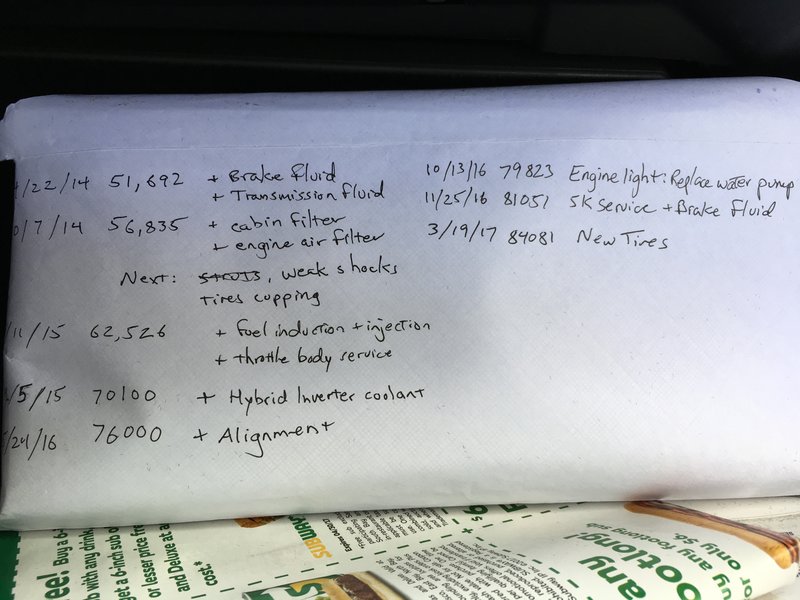 /22/14 51,692 + Brake fluid
+ Transmission fluid
/7/14 56,835 + cabin filter
+ engine air filter
Next: struts, weak shocks
tires cupping
/11/15 62,526 + fuel induction + injection
+ throttle body service
/5/15 70100 + Hybrid Inverter coolant
/24/16 76000 + Alignment
10/13/16 79823 Engine light: Replace water pump
11/25/16 81051 5K Service + Brake fluid
3/19/17 84081 New Tires
ee! Buy a 6-
b with any drink
get a 6-inch sub o
or lesser price fre
and Deluxe at a
cost.*
SUBWAY
Expires 04
$6
any
ootlong!
uy any
or only $6.
footlong sub